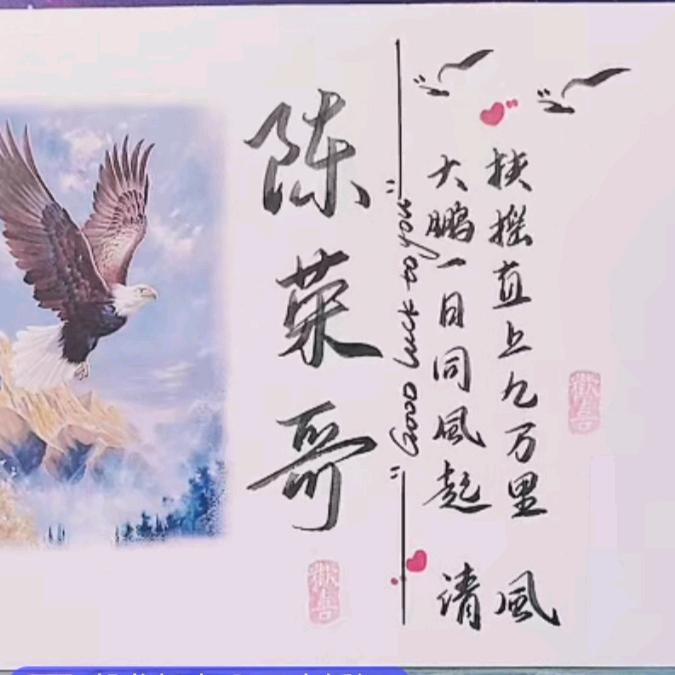 陈荣哥
"Good luck to you"
大鹏一日同風起
扶摇直上九万里
清風
歡喜
歡喜